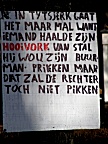 DE IN TYTSJERK GAAT
HET MAAR MAL WANT
IEMAND HAALDE ZIJN
HOOIVORK VAN STAL
HIJ WOU ZIJN BUUR
MAN PRIKKEN MAAR
DAT ZAL DE RECHTER
TOCH NIET PIKKEN